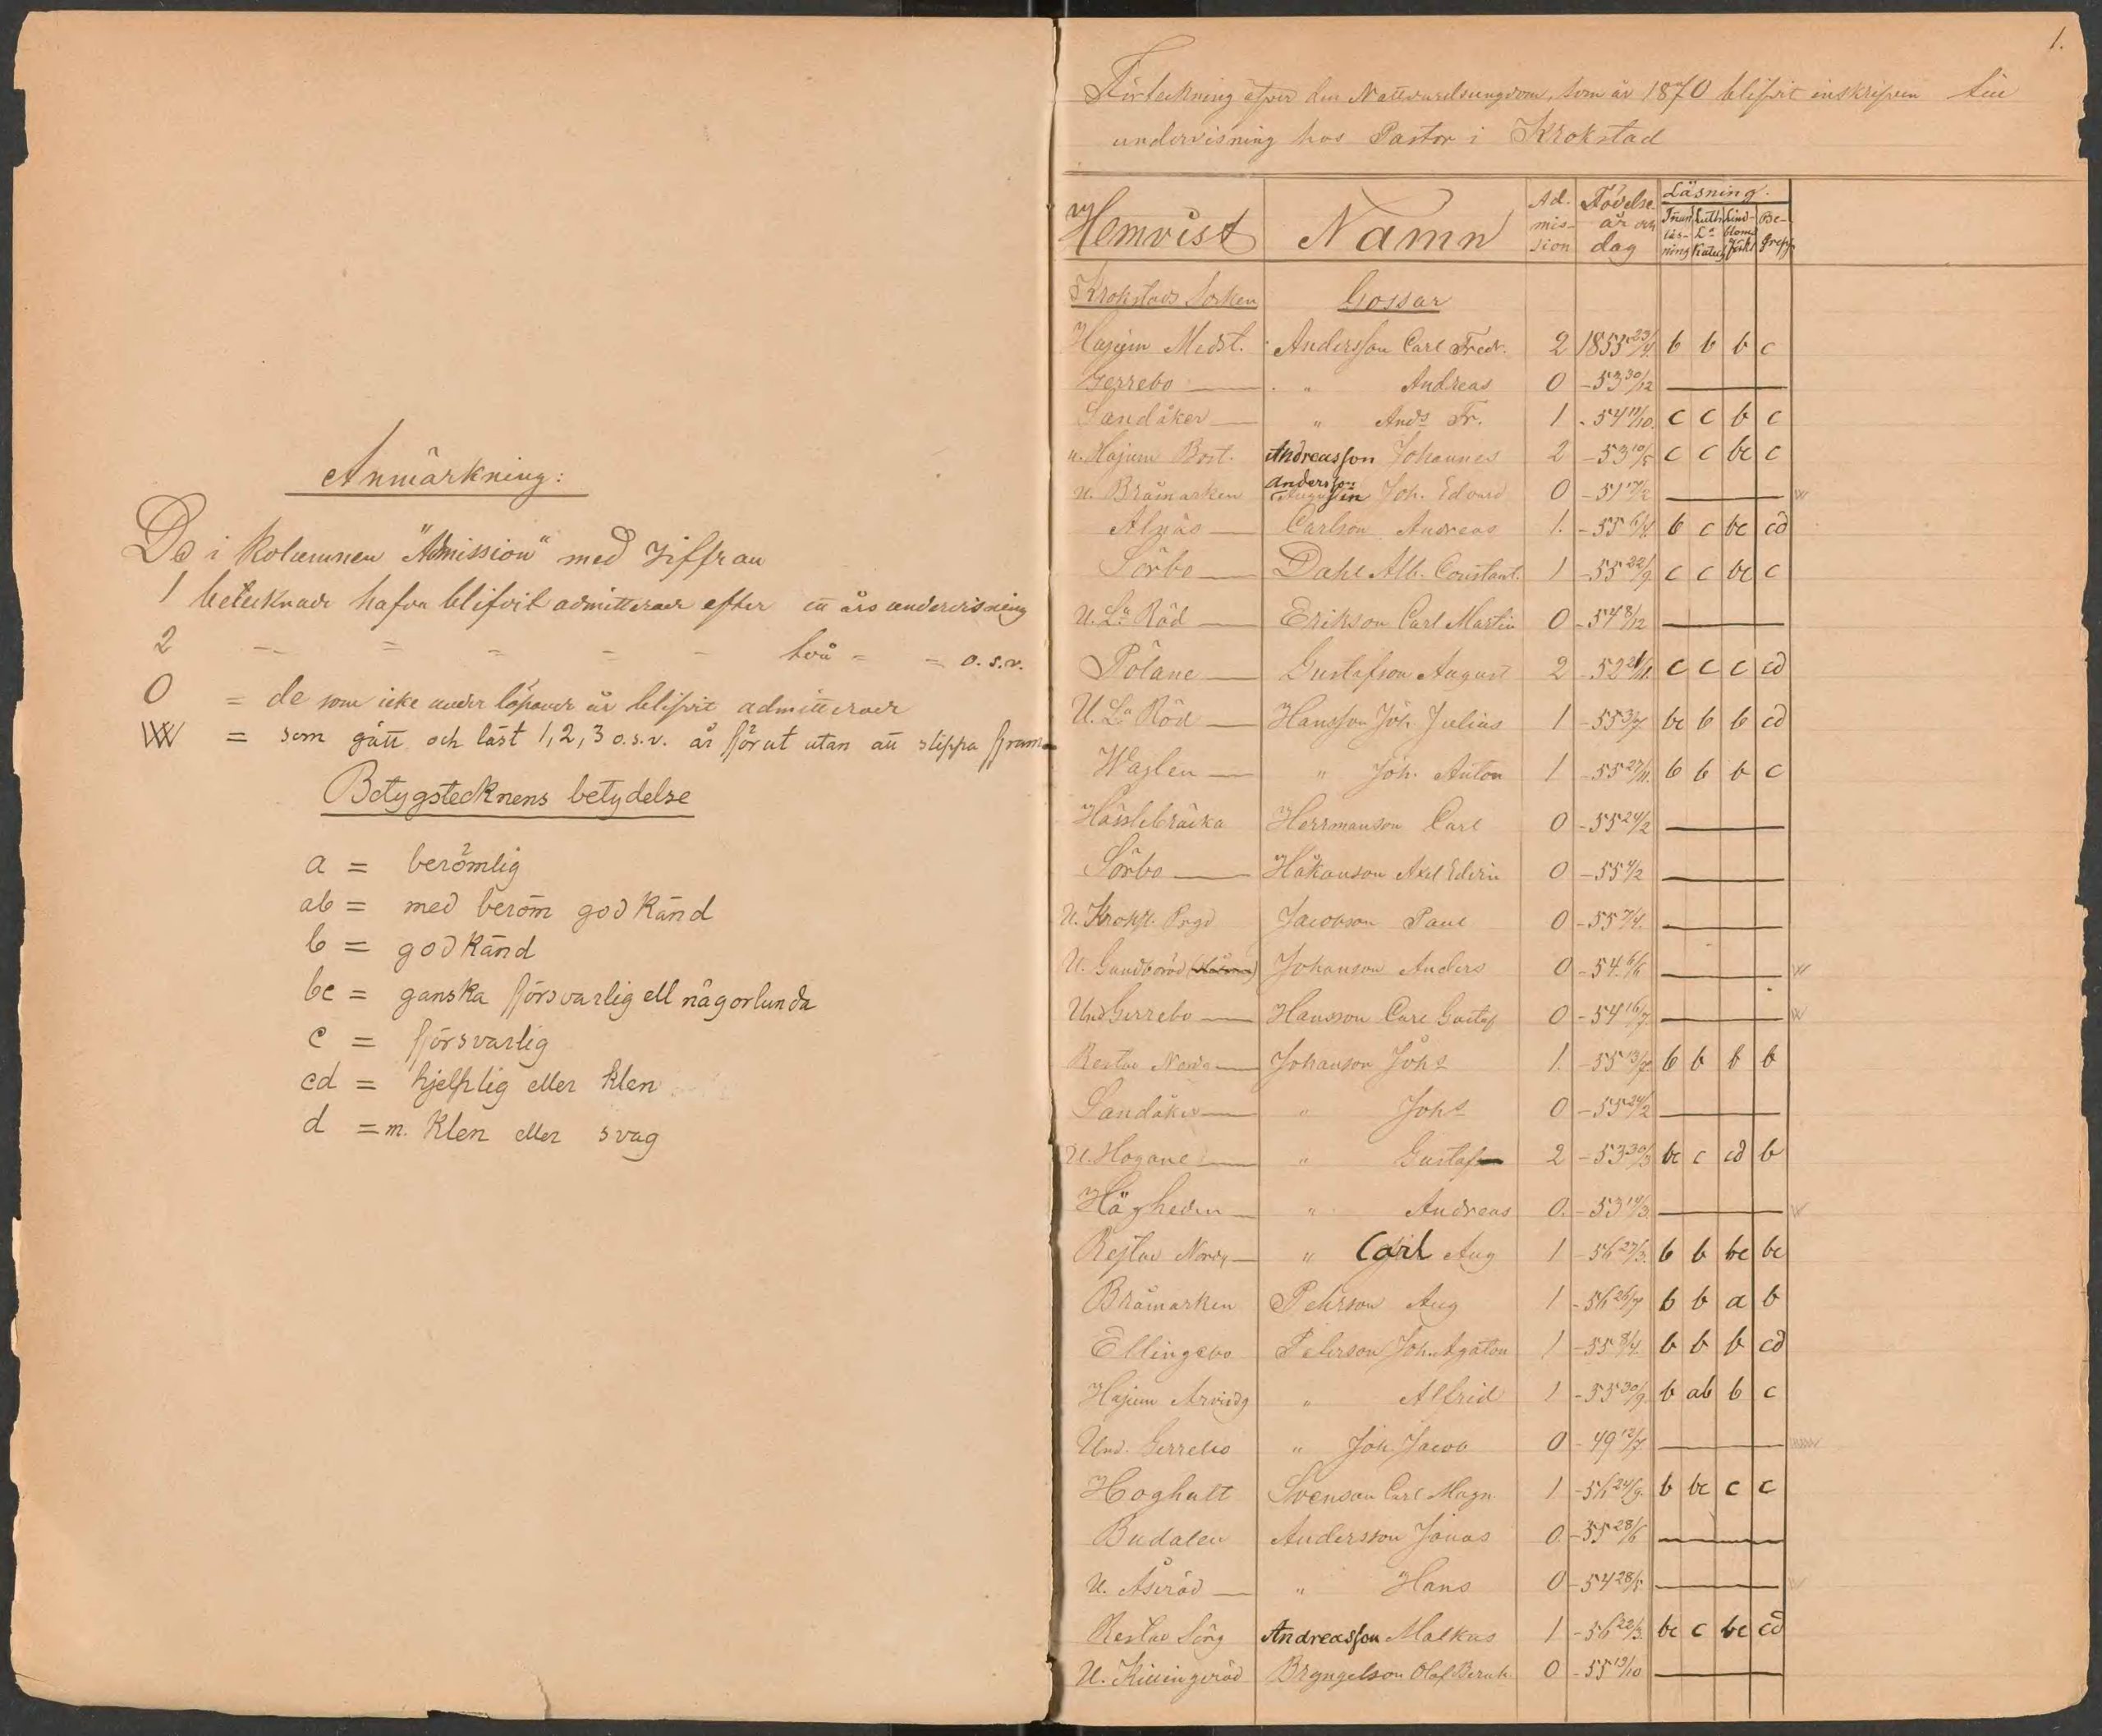 Anmärkning:
De i Kolumnen "Admission" med ziffran
1 betecknade hafva blifvit admitterade efter ett års undervisning
2 – = = = – två = = o.s.v.
0 = de som icke under löpande år blifvit admitterade
VVV = som gått och läst 1, 2, 3 o.s.v. år förut utan att slippa fram
Betygstecknens betydelse
a = berömlig
ab = med beröm godkänd
b = godkänd
bc = ganska försvarlig ell någorlunda
c = försvarlig
cd = hjelplig eller klen
d = m. klen eller svag
1.
Förteckning öfver den Nattvardsungdom, som år 1870 blifvit inskrifven till
undervisning hos Pastor i Krokstad
Hemvist Namn Admission Födelse år och dag Läsning. Innanläsning Luth. La Katech Lindbloms Förkl Begrepp
Krokstads Socken Gossar
Hajum Medst. Andersson Carl Fredr. 2 1855 23/4. b b b c
Gerrebo — " Andreas 0 –53 30/12 —
Sandåker — " Ands Fr. 1 –54 11/10. c c b c
u. Hajum Bost. Andreasson Johannes 2 –53 10/5 c c bc c
u. Bråmarken Andersson Joh. Edvard 0 –51 17/2 —
Alnäs — Carlson Andreas 1. –55 6/4. b c bc cd
Sörbo — Dahl Alb. Constant. 1 –55 22/9 c c bc c
U. La Röd — Erikson Carl Martin 0 –54 8/12 —
Pölane — Gustafson August 2 –52 21/11. c c c cd
U. La Röd — Hansson Joh. Julius 1 –55 3/7. bc b b cd
Waglen — " Joh. Anton 1 –55 27/11. b b b c
Hässlebräcka Hermanson Carl 0 –55 24/2 —
Sörbo — Håkanson Axel Edvin 0 –55 4/2 —
U. Krokst. Prgd Jacobson Paul 0 –55 7/4. —
U. Sandboröd Johanson Anders 0 –54. 6/6 —
Und Gerrebo — Hansson Carl Gustaf 0 –54 16/7. —
Restav Nordg — Johanson Johs 1. –55 13/7 b b b b
Sandåker — " Johs 0 –55 24/2 —
U. Hogane — " Gustaf 2 –53 30/3 bc c cd b
Högheden — " Andreas 0. –53 14/3. —
Restav Nordg — " Carl Aug 1 –56 27/3. b b bc bc
Bråmarken Pehrson Aug 1 –56 26/7 b b a b
Ellingebo Peterson Joh. Agaton 1 –55 8/4. b b b cd
Hajum Arvidsg " Alfrid 1 –55 30/9. b ab b c
Und. Gerrebo " Joh. Jacob 0 –49 12/7 —
Hoghult Svenson Carl Magn 1 –56 24/9. b bc c c
Budalen Andersson Jonas 0. –55 28/6 —
U. Åseröd — " Hans 0 –54 28/5. —
Restav Sörg Andreasson Malkus 1 –56 22/3. bc c bc cd
U. Killingeröd Bryngelson Olof Bernh. 0 –55 19/10 —